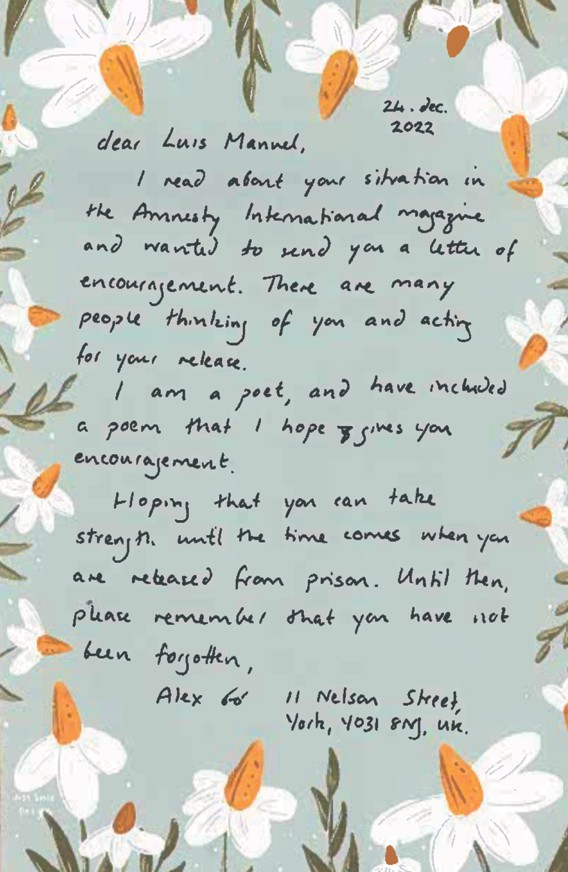 24. dec.
2022
dear Luis Manuel,
I read about your situation in
the Amnesty International magazine
and wanted to send you a letter of
encouragement. There are many
people thinking of you and acting
for your release.
I am a poet, and have included
a poem that I hope gives you
encouragement.
Hoping that you can take
strength until the time comes when you
are released from prison. Until then,
please remember that you have not
been forgotten,
Alex 11 Nelson Street,
York, YO31 8NJ, UK.